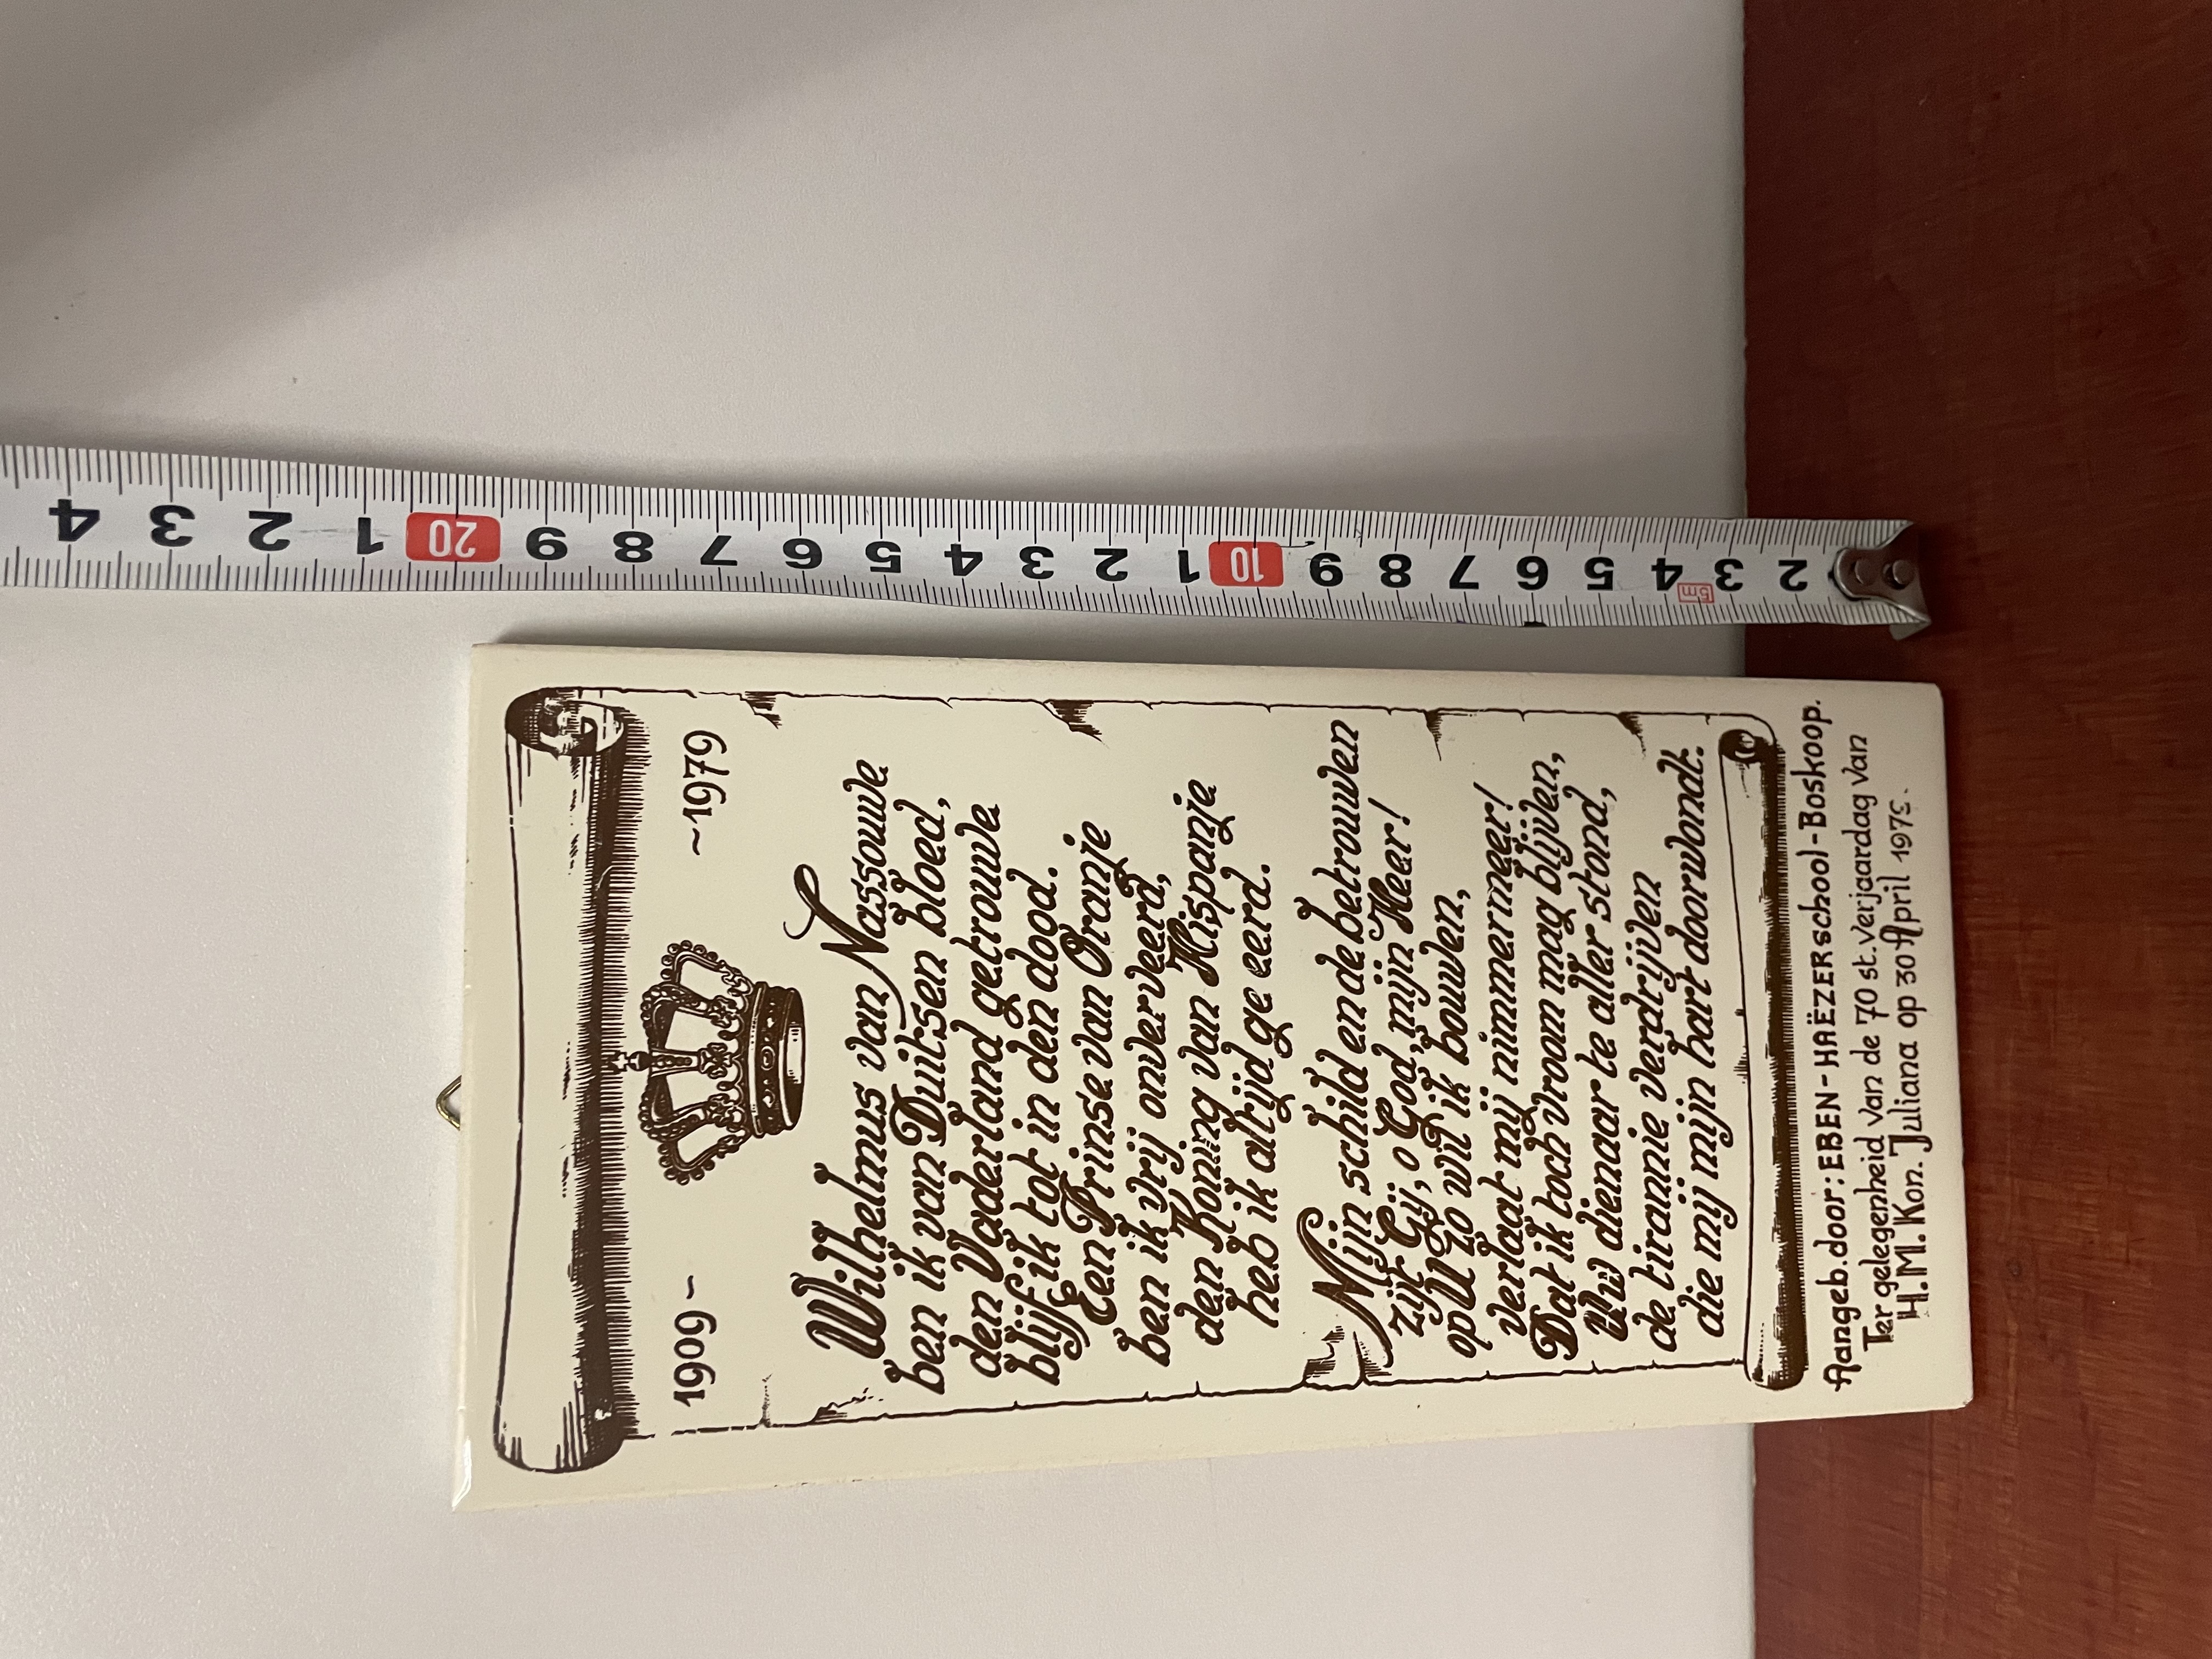 1909 - ~1979
Wilhelmus van Nassouwe
ben ik van Duitsen bloed,
den Vaderland getrouwe
blijf ik tot in den dood.
Een Prinse van Oranje
ben ik vrij onverveerd,
den Koning van Hispanje
heb ik altijd ge eerd.
Mijn schild ende betrouwen
zijt Gij, o God, mijn Heer!
op U zo wil ik bouwen,
verlaat mij nimmermeer!
Dat ik toch vroom mag blijven,
Uw dienaar te aller stond,
de tirannie verdrijven
die mij mijn hart doorwondt.
Aangeb.door: EBEN-HAËZER school-Boskoop.
Ter gelegenheid van de 70 st. verjaardag van
H.M. Kon. Juliana op 30 April
2 3 4 5 6 7 8 9 10 1 2 3 4 5 6 7 8 9 20 1 2 3 4
5m